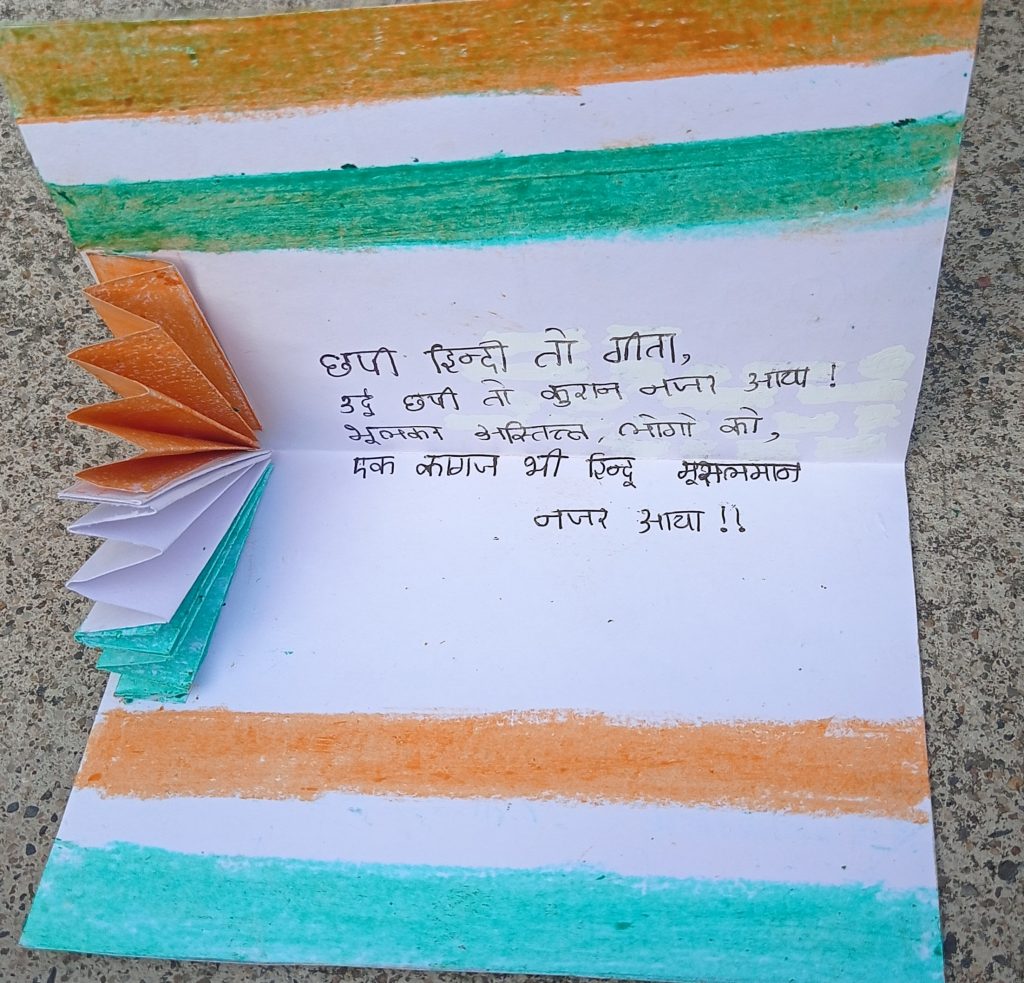 छपी हिन्दी तो गीता,
उर्दू छपी तो कुरान नजर आया !
भूलकर अस्तित्त्व, लोगो को,
एक कागज भी हिन्दू मूसलमान
नजर आया !!